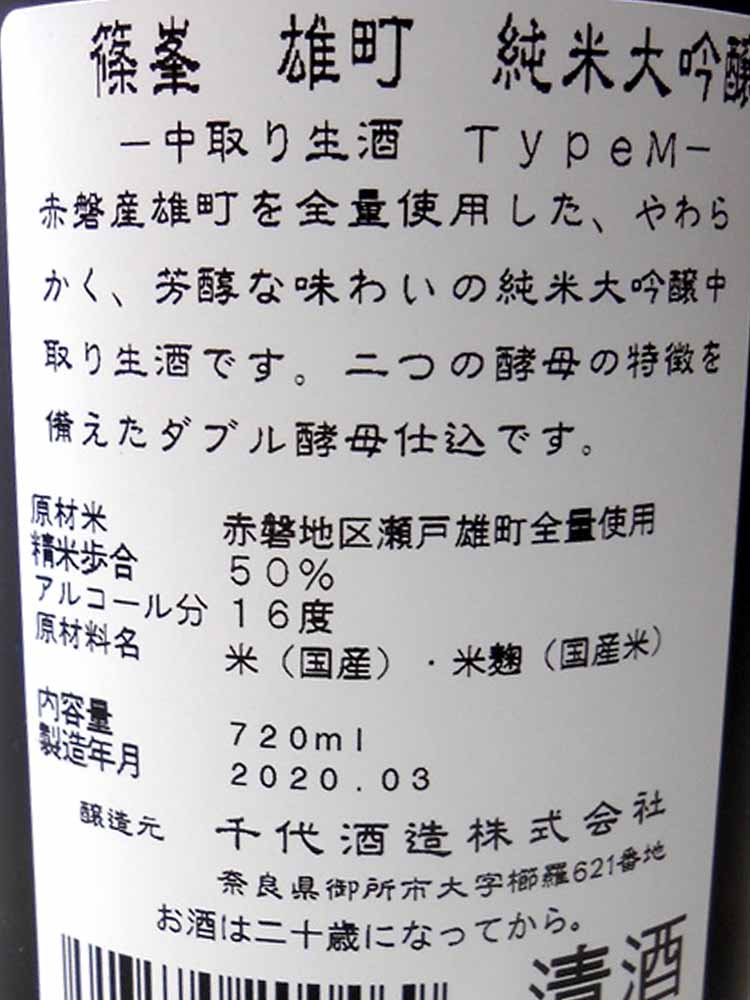 篠峯 雄町 純米大吟醸
－中取り生酒 TypeM－
赤磐産雄町を全量使用した、やわら
かく、芳醇な味わいの純米大吟醸中
取り生酒です。二つの酵母の特徴を
備えたダブル酵母仕込です。
原材米 赤磐地区瀬戸雄町全量使用
精米歩合 50%
アルコール分 16度
原材料名 米（国産）・米麹（国産米）
内容量 720ml
製造年月 2020.03
醸造元 千代酒造株式会社
奈良県御所市大字櫛羅621番地
お酒は二十歳になってから。
清酒